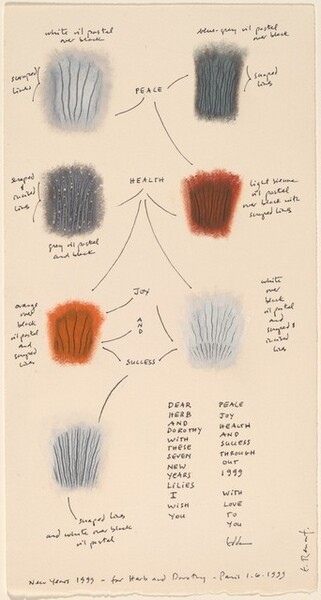 white oil pastel
over black
blue-grey oil pastel
over black
scraped
lines
scraped
lines
PEACE
scraped
&
incised
lines
HEALTH
light sienna
oil pastel
over black with
scraped lines
grey oil pastel
and black
orange
over
black
oil pastel
and
scraped
lines
JOY
AND
SUCCESS
white
over
black
oil pastel
and
scraped &
incised
lines
scraped lines
and white over black
oil pastel
DEAR
HERB
AND
DOROTHY
WITH
THESE
SEVEN
NEW
YEARS
LILIES
I
WISH
YOU
PEACE
JOY
HEALTH
AND
SUCCESS
THROUGH
OUT
1999
WITH
LOVE
TO
YOU
New Years 1999 - for Herb and Dorothy - Paris 1.6.1999